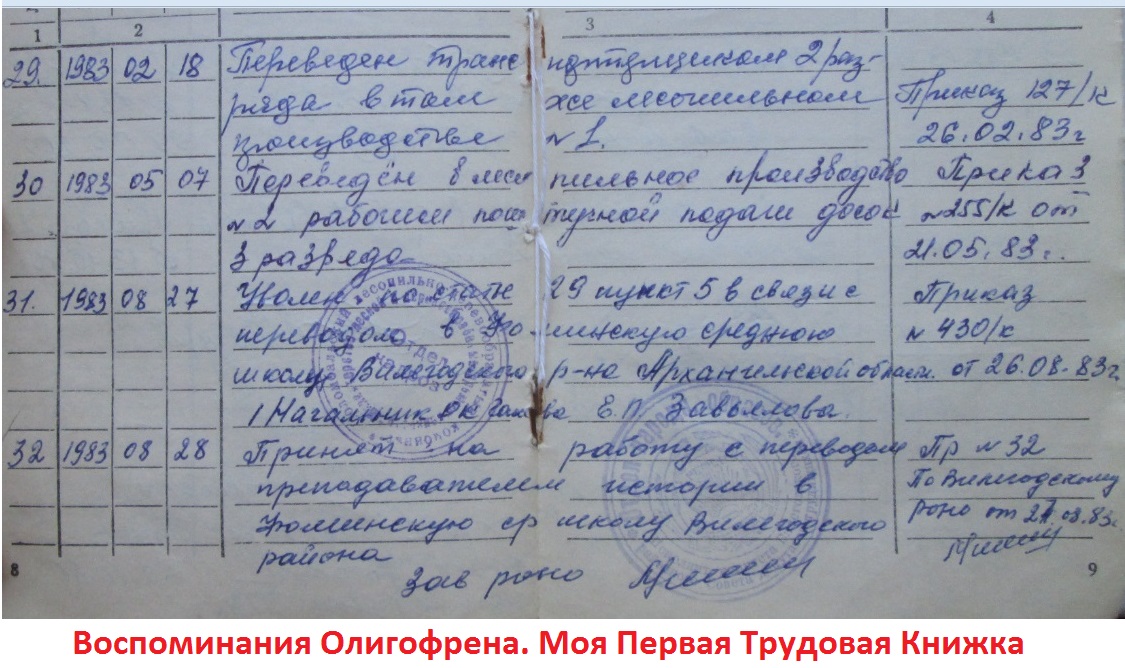 1 2 3 4
29. 1983 02 18 Переведен транспортировщиком 2 раз-
ряда в том же лесопильном Приказ 127/к
производстве №1. 26.02.83г
30 1983 05 07 Переведён в лесопильное производство Приказ
№2 рабочим поштучной подачи досок №255/к от
3 разряда 21.05.83г.
31. 1983 08 27 Уволен по статье 29 пункт 5 в связи с Приказ
переводом в Фоминскую среднюю №430/к
школу Вилегодского р-на Архангельской области. от 26.08.83г.
Начальник ОК Е.П. Завьялова.
отдел кадров
32 1983 08 28 Принят на работу с переводом Пр №32
преподавателем истории в По Вилегодскому
Фоминскую ср школу Вилегодского роно от 08.83г.
района
Зав роно
8 9
Воспоминания Олигофрена. Моя Первая Трудовая Книжка